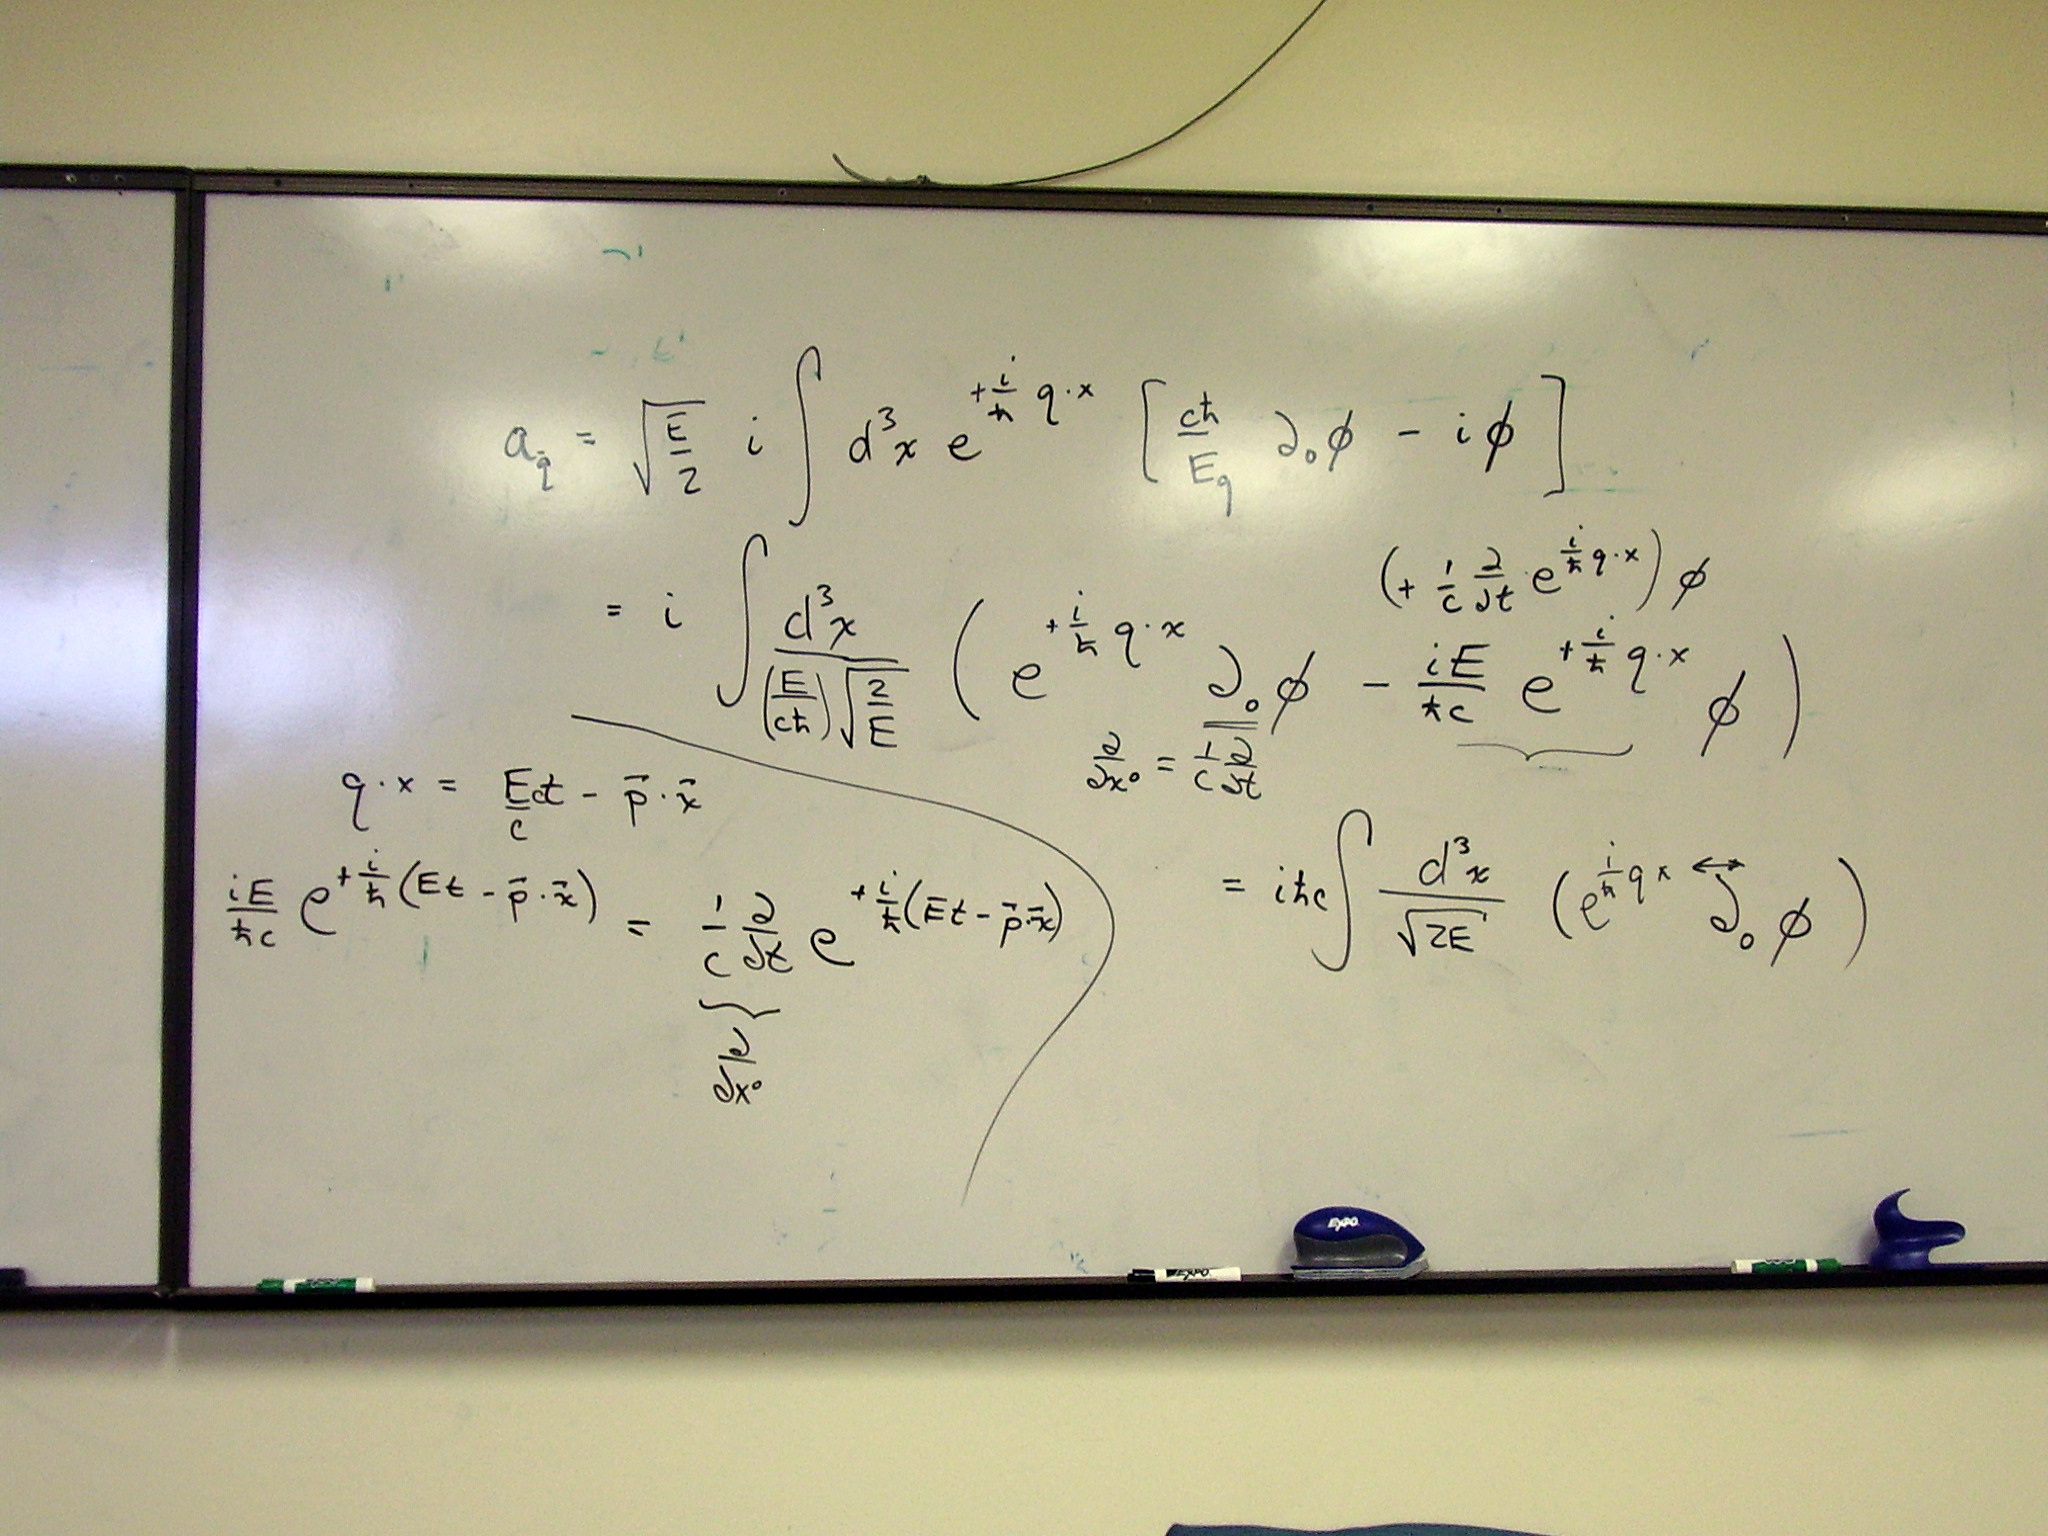 a_q = √(E/2) i ∫ d³x e^{+i/ħ q·x} [ cħ/E_q ∂₀ϕ − iϕ ]
(+ 1/c ∂/∂t e^{i/ħ q·x}) ϕ
= i ∫ d³x / ((E/cħ)√(2/E)) ( e^{+i/ħ q·x} ∂₀ϕ − iE/ħc e^{+i/ħ q·x} ϕ )
∂/∂x⁰ = 1/c ∂/∂t
q·x = E/c ct − p⃗·x⃗
iE/ħc e^{+i/ħ (Et − p⃗·x⃗)} = 1/c ∂/∂t e^{+i/ħ (Et − p⃗·x⃗)}
∂/∂x⁰
= iħc ∫ d³x/√(2E) ( e^{i/ħ qx} ∂↔₀ ϕ )
EXPO
EXPO